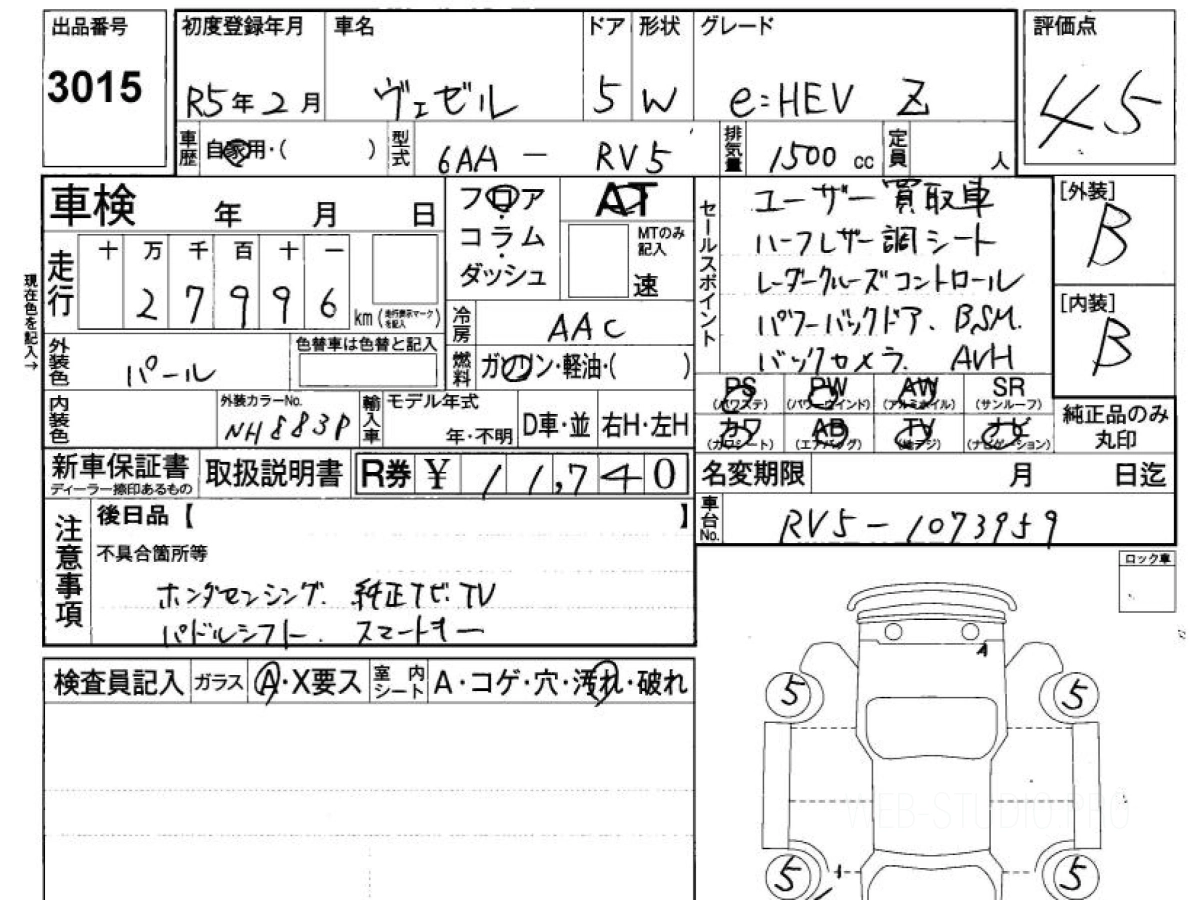 出品番号 初度登録年月 車名 ドア 形状 グレード 評価点
3015 R5年2月 ヴェゼル 5 W e:HEV Z 4.5
車歴 自家用・( ) 型式 6AA - RV5 排気量 1500 cc 定員 人
車検 年 月 日
フロア・コラム・ダッシュ AT MTのみ記入 速
セールスポイント
ユーザー買取車
ハーフレザー調シート
レーダークルーズコントロール
パワーバックドア. BSM.
バックカメラ. AVH
[外装]
B
[内装]
B
現在色を記入→
走行 十 万 千 百 十 一
2 7 9 9 6 km (走行表示マークを記入)
冷房 AAC
燃料 ガソリン・軽油・( )
外装色 パール 色替車は色替と記入
内装色 外装カラーNo. NH883P 輸入車 モデル年式 年・不明 D車・並 右H・左H
PS (パワステ) PW (パワーウインド) AW (アルミホイル) SR (サンルーフ)
カワ (カワシート) AB (エアバッグ) TV (地デジ) ナビ (ナビゲーション)
純正品のみ丸印
新車保証書 ディーラー捺印あるもの 取扱説明書 R券 ¥ 11,740
名変期限 月 日迄
車台No. RV5-1073959
注意事項
後日品【 】
不具合箇所等
ホンダセンシング. 純正ナビ.TV
パドルシフト. スマートキー
ロック車
検査員記入 ガラス A・X要ス 室内シート A・コゲ・穴・汚れ・破れ
A
5 5
5 5
WEB-STUDIO.PRO